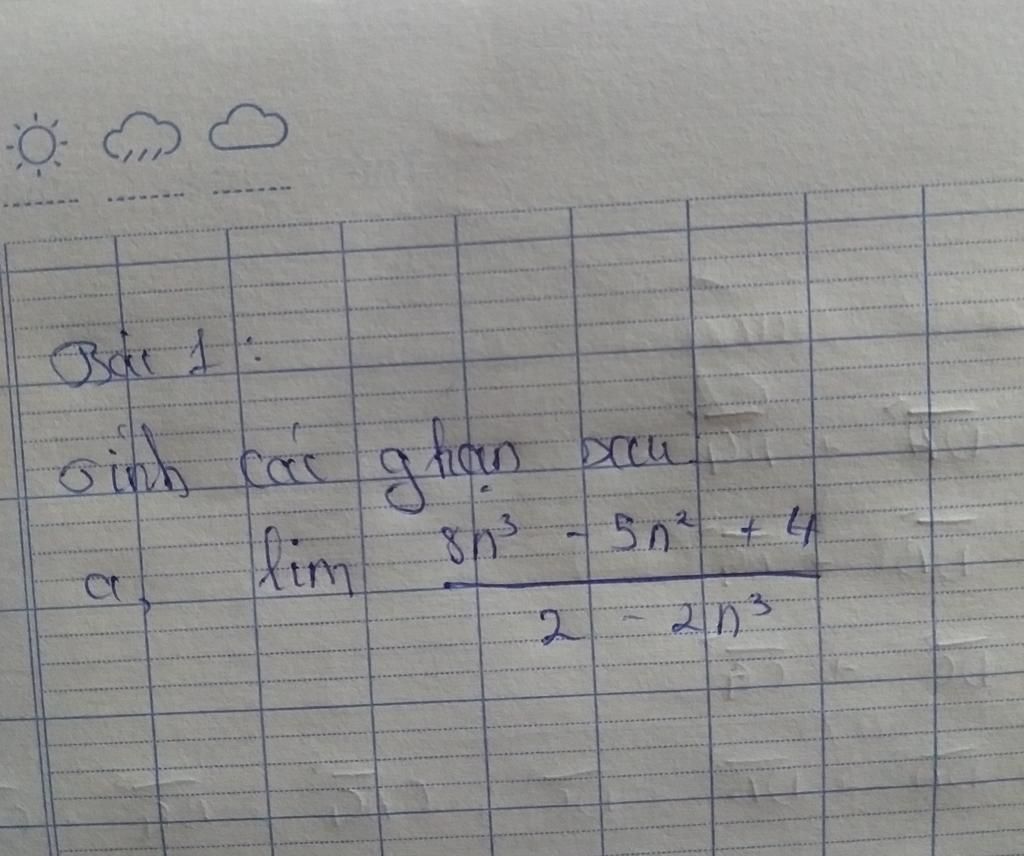 Bài 1:
Tính các ghạn sau
a, lim \frac{8n^3 - 5n^2 + 4}{2 - 2n^3}